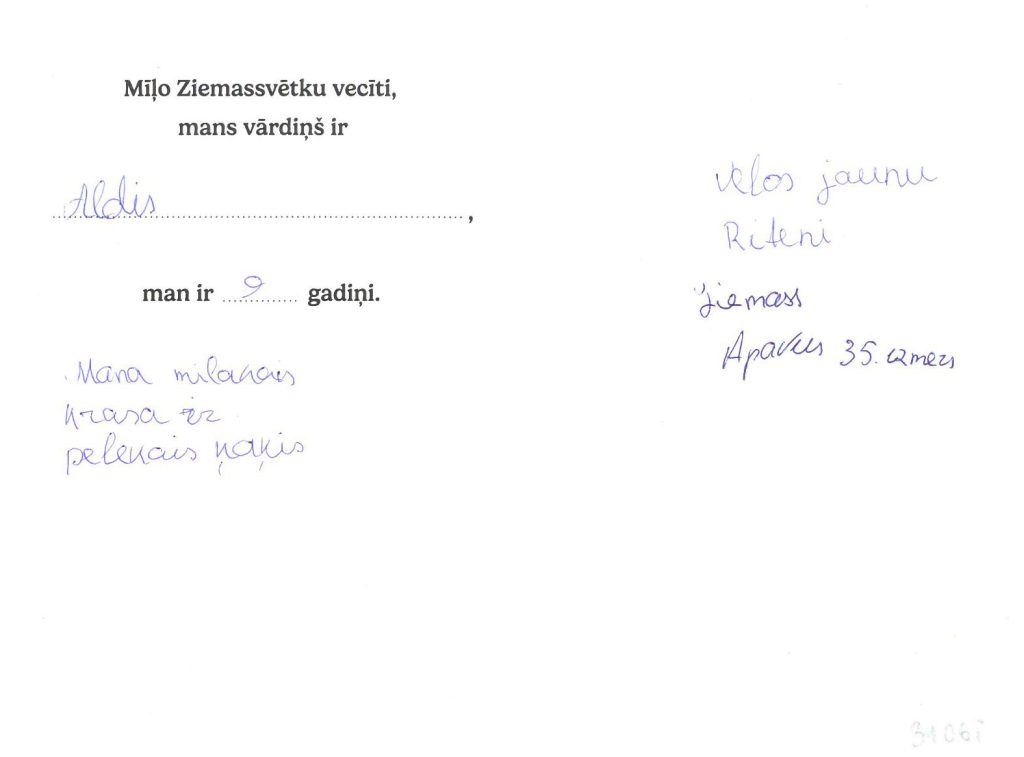 Mīļo Ziemassvētku vecīti,
mans vārdiņš ir
Aldis,
man ir 9 gadiņi.
Mana milakais
krasa ir
pelekais ķaķis
velos jaunu
Riteni
ziemass
Apavus 35. izmers